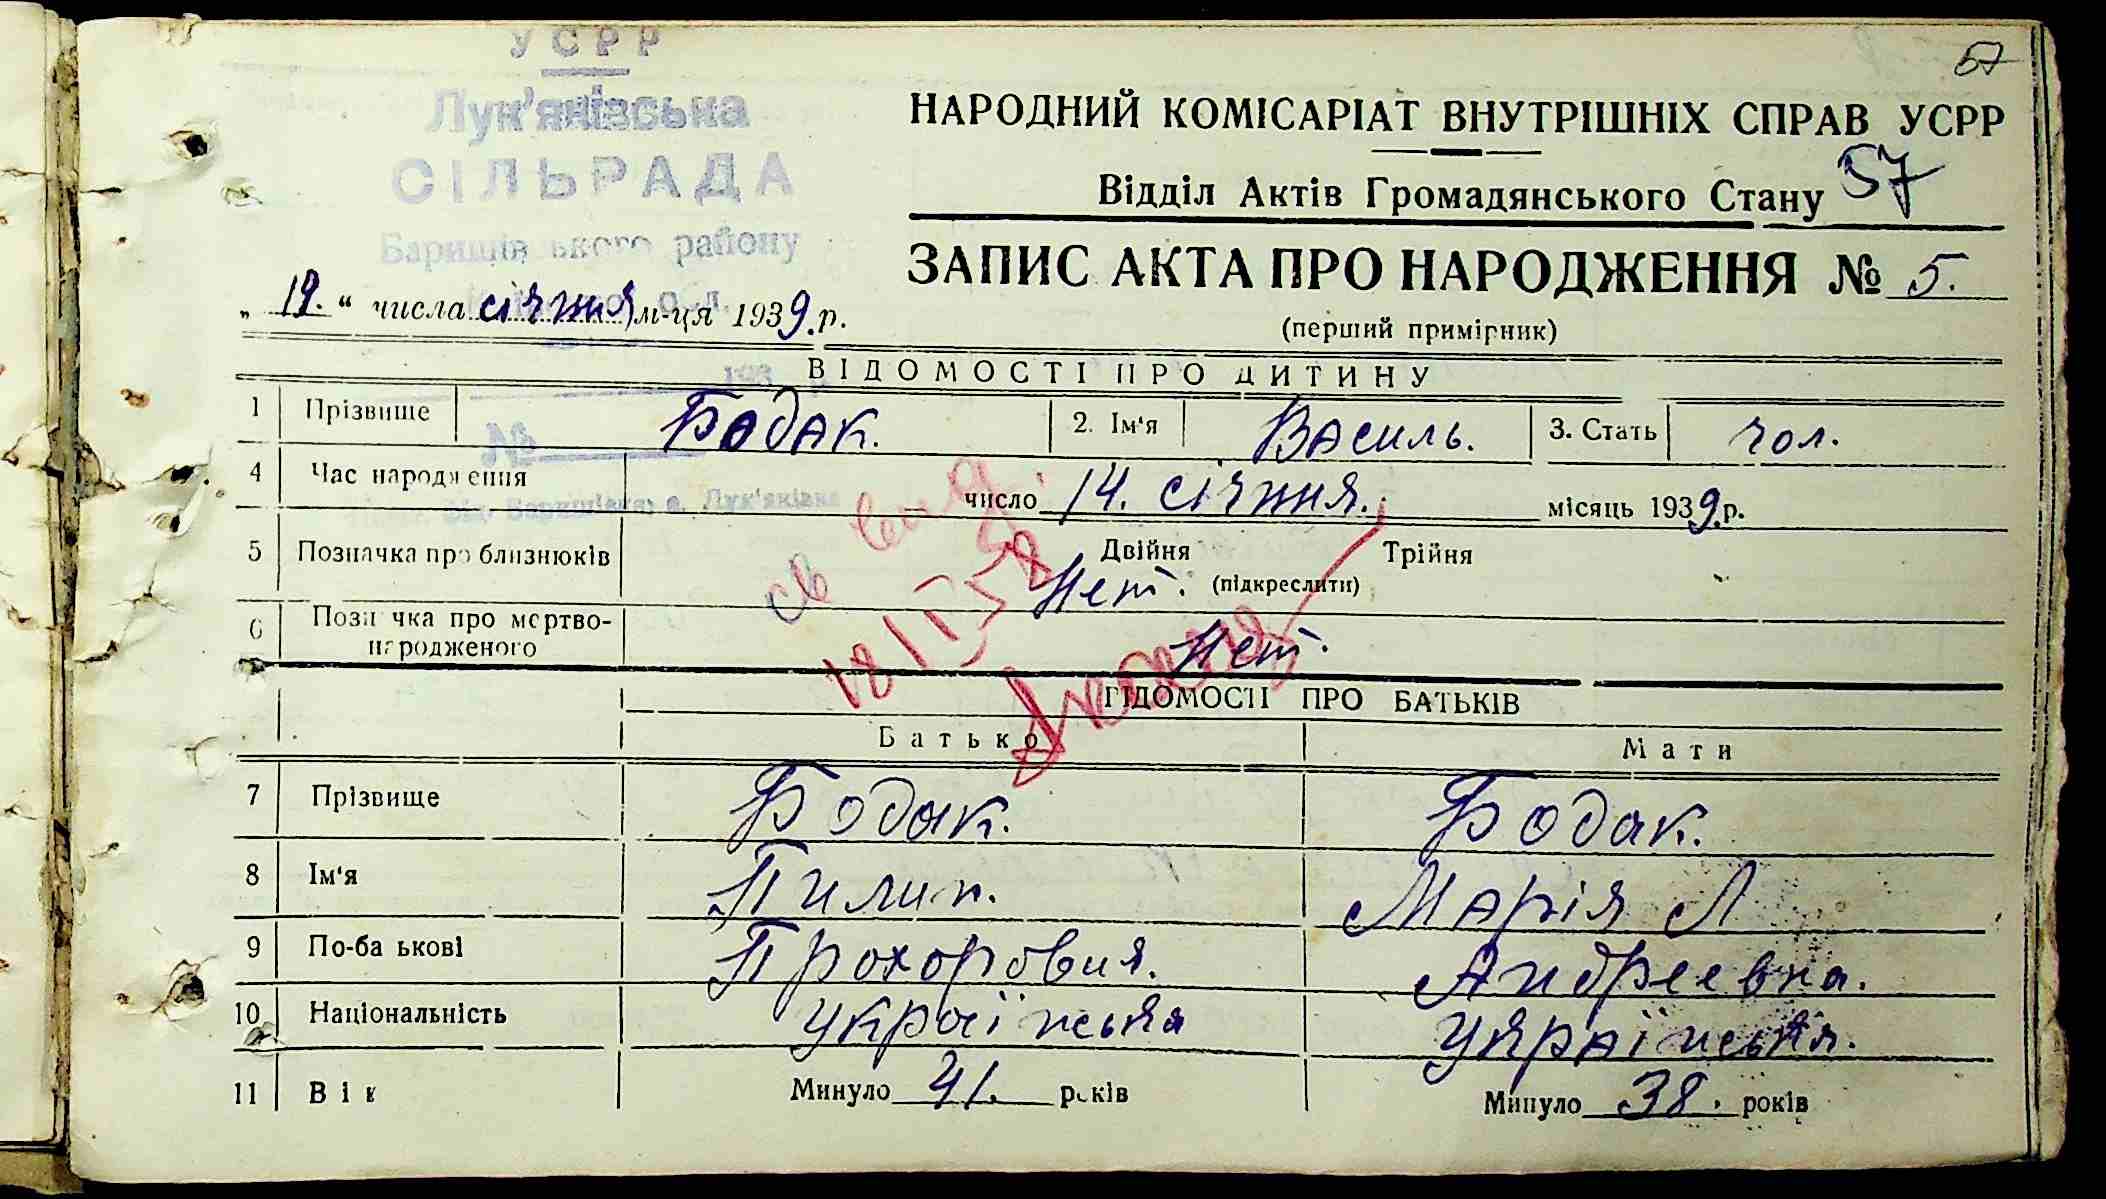 57
УСРР
Лук'янівська
СІЛЬРАДА
району
НАРОДНИЙ КОМІСАРІАТ ВНУТРІШНІХ СПРАВ УСРР
Відділ Актів Громадянського Стану 57
ЗАПИС АКТА ПРО НАРОДЖЕННЯ № 5.
(перший примірник)
„ 19. “ числа січня м-ця 1939 р.
ВІДОМОСТІ ПРО ДИТИНУ
1 Прізвище Бодак. 2. Ім'я Василь. 3. Стать чол.
№
4 Час народження число 14. січня. місяць 1939 р.
5 Позначка про близнюків Двійня Трійня
Нет. (підкреслити)
6 Позначка про мертво-
народженого Нет.
ВІДОМОСТІ ПРО БАТЬКІВ
Батько Мати
7 Прізвище Бодак. Бодак.
8 Ім'я Пилип. Марія Л
9 По-ба ькові Прохорович. Андреевна.
10 Національність українська українська.
11 Вік Минуло 41. років Минуло 38. років